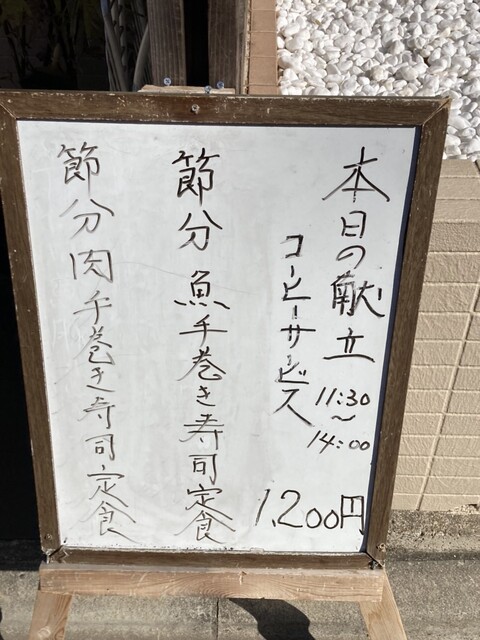 本日の献立
11:30
～
14:00
コーヒーサービス
1,200円
節分魚手巻き寿司定食
節分肉手巻き寿司定食